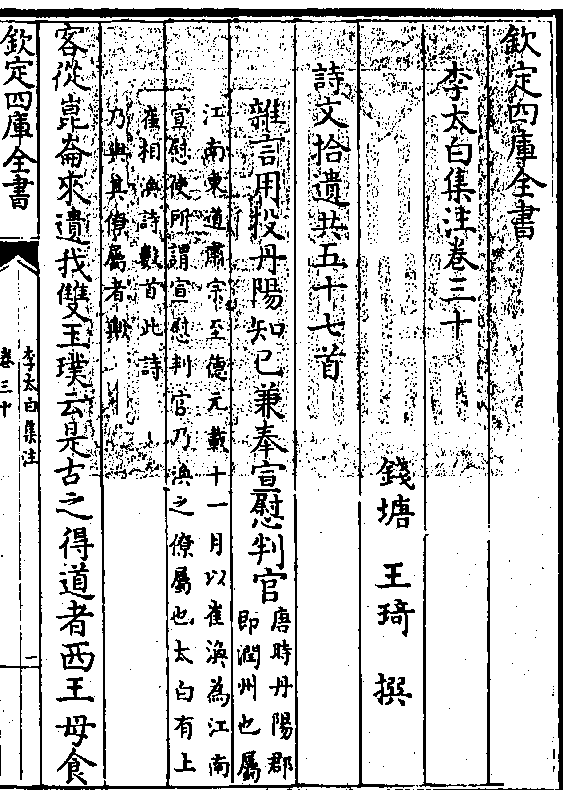 欽定四庫全書
李太白集注卷三十
錢塘 王琦 撰
詩文拾遺共五十七首
雜言用投丹陽知已兼奉宣慰判官
唐時丹陽郡
即潤州也屬
江南東道肅宗至德元載十一月以崔渙為江南
宣慰使所謂宣慰判官乃渙之僚屬也太白有上
崔相渙詩數首此詩
乃與其僚屬者歟
客從崑崙來遺我雙玉璞云是古之得道者西王母食
欽定四庫全書
李太白集注
卷三十
一